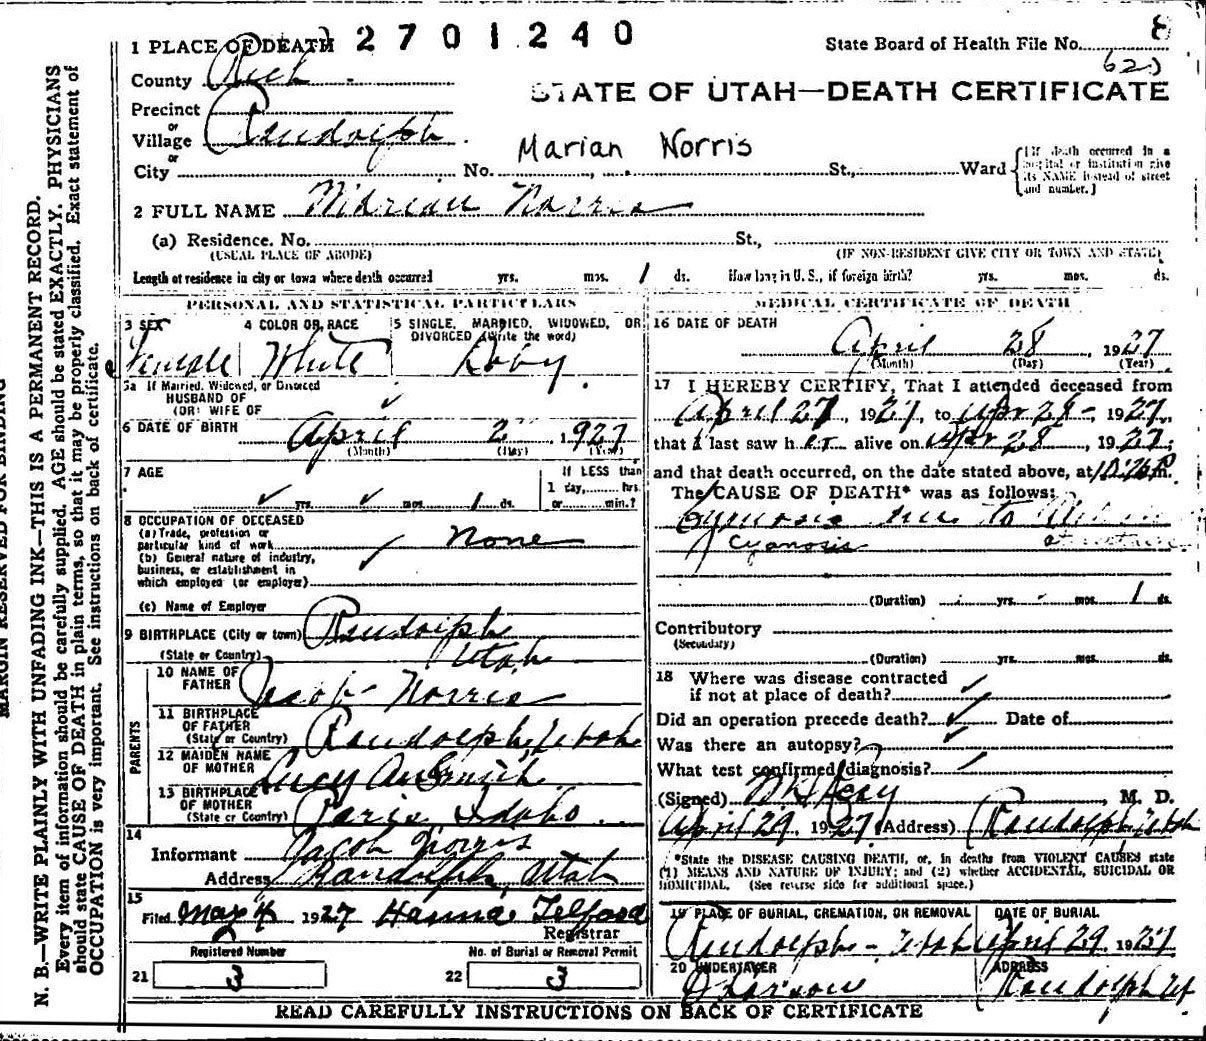 1 PLACE OF DEATH 2 7 0 1 2 4 0
State Board of Health File No. 8
62
County Rich
STATE OF UTAH—DEATH CERTIFICATE
Precinct
or
Village Randolph
or
Marian Norris
City No. St., Ward {[If death occurred in a hospital or institution give its NAME instead of street and number.]
2 FULL NAME Marian Norris
(a) Residence. No. St.,
(USUAL PLACE OF ABODE) (IF NON-RESIDENT GIVE CITY OR TOWN AND STATE)
Length of residence in city or town where death occurred yrs. mos. 1 ds. How long in U. S., if foreign birth? yrs. mos. ds.
PERSONAL AND STATISTICAL PARTICULARS
3 SEX
Female
4 COLOR OR RACE
White
5 SINGLE, MARRIED, WIDOWED, OR
DIVORCED (Write the word)
Baby
5a If Married, Widowed, or Divorced
HUSBAND OF
(OR) WIFE OF
6 DATE OF BIRTH April 2 1927
(Month) (Day) (Year)
7 AGE
If LESS than
1 day, hrs.
or min.?
yrs. mos. 1 ds.
8 OCCUPATION OF DECEASED
(a) Trade, profession or
particular kind of work None
(b) General nature of industry,
business, or establishment in
which employed (or employer)
(c) Name of Employer
9 BIRTHPLACE (City or town) Randolph
(State or Country) Utah
PARENTS
10 NAME OF
FATHER Jacob Norris
11 BIRTHPLACE
OF FATHER
(State or Country) Randolph, Utah
12 MAIDEN NAME
OF MOTHER Lucy Ann
13 BIRTHPLACE
OF MOTHER
(State or Country) Paris Idaho
14
Informant Jacob Norris
Address Randolph, Utah
15
Filed May 4 1927 Hanna Telford
Registrar
Registered Number
No. of Burial or Removal Permit
21 3
22 3
MEDICAL CERTIFICATE OF DEATH
16 DATE OF DEATH
April 28, 1927
(Month) (Day) (Year)
17 I HEREBY CERTIFY, That I attended deceased from
April 27, 1927, to Apr 28 - 1927,
that I last saw h er alive on Apr 28, 1927;
and that death occurred, on the date stated above, at m.
The CAUSE OF DEATH* was as follows:
due to
Cyanosis
(Duration) yrs. mos. 1 ds.
Contributory
(Secondary)
(Duration) yrs. mos. ds.
18 Where was disease contracted
if not at place of death?
Did an operation precede death? Date of
Was there an autopsy?
What test confirmed diagnosis?
(Signed) M. D.
April 29 1927 (Address) Randolph Utah
*State the DISEASE CAUSING DEATH, or, in deaths from VIOLENT CAUSES state
(1) MEANS AND NATURE OF INJURY; and (2) whether ACCIDENTAL, SUICIDAL OR
HOMICIDAL. (See reverse side for additional space.)
19 PLACE OF BURIAL, CREMATION, OR REMOVAL
Randolph - Utah
DATE OF BURIAL
April 29 1927
20 UNDERTAKER
ADDRESS
Randolph Ut.
READ CAREFULLY INSTRUCTIONS ON BACK OF CERTIFICATE
MARGIN RESERVED FOR BINDING
N. B.—WRITE PLAINLY WITH UNFADING INK—THIS IS A PERMANENT RECORD.
Every item of information should be carefully supplied. AGE should be stated EXACTLY. PHYSICIANS
should state CAUSE OF DEATH in plain terms, so that it may be properly classified. Exact statement of
OCCUPATION is very important. See instructions on back of certificate.